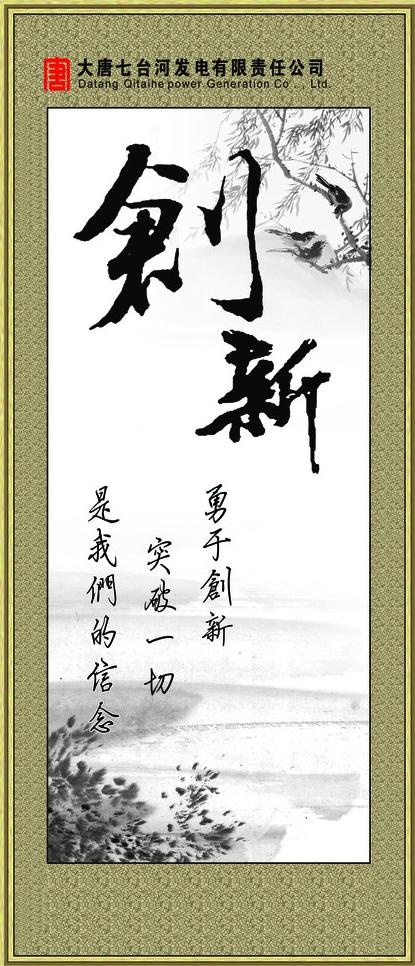 大唐七台河发电有限责任公司
Datang Qitaihe power Generation Co．, Ltd.
創新
勇于創新
突破一切
是我們的信念